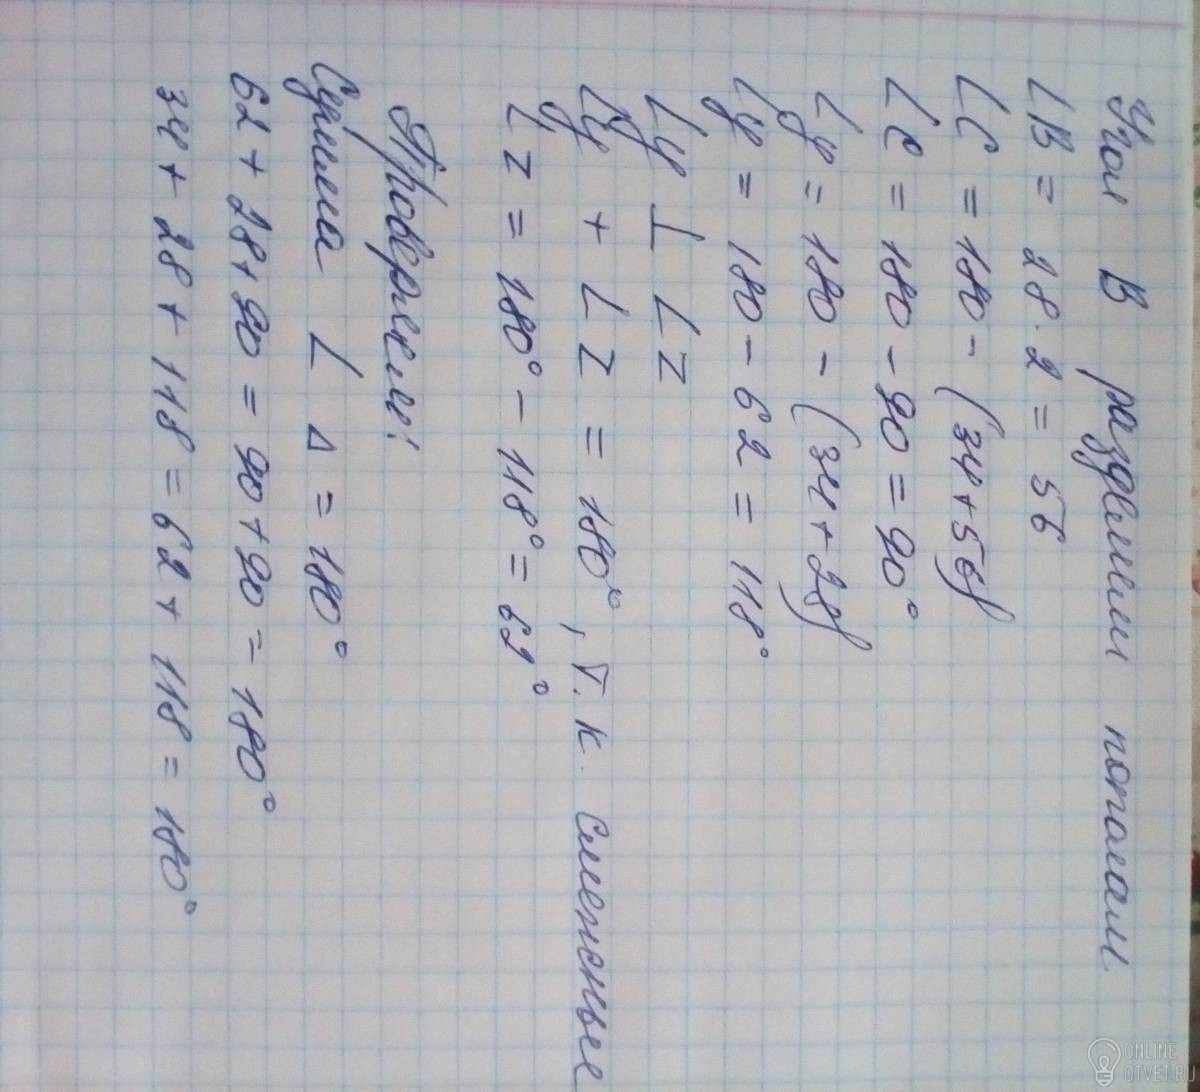 Угол В разделим пополам
∠B = 28 · 2 = 56
∠C = 180 - (34+56)
∠C = 180 - 90 = 90°
∠y = 180 - (34+28)
∠y = 180 - 62 = 118°
∠y ⊥ ∠z
∠y + ∠z = 180°, т.к. смежные
∠z = 180° - 118° = 62°
Проверяем:
Сумма ∠ Δ = 180°
62+28+90 = 90+90 = 180°
34+28+118 = 62+118 = 180°
ONLINE
OTVET.RU